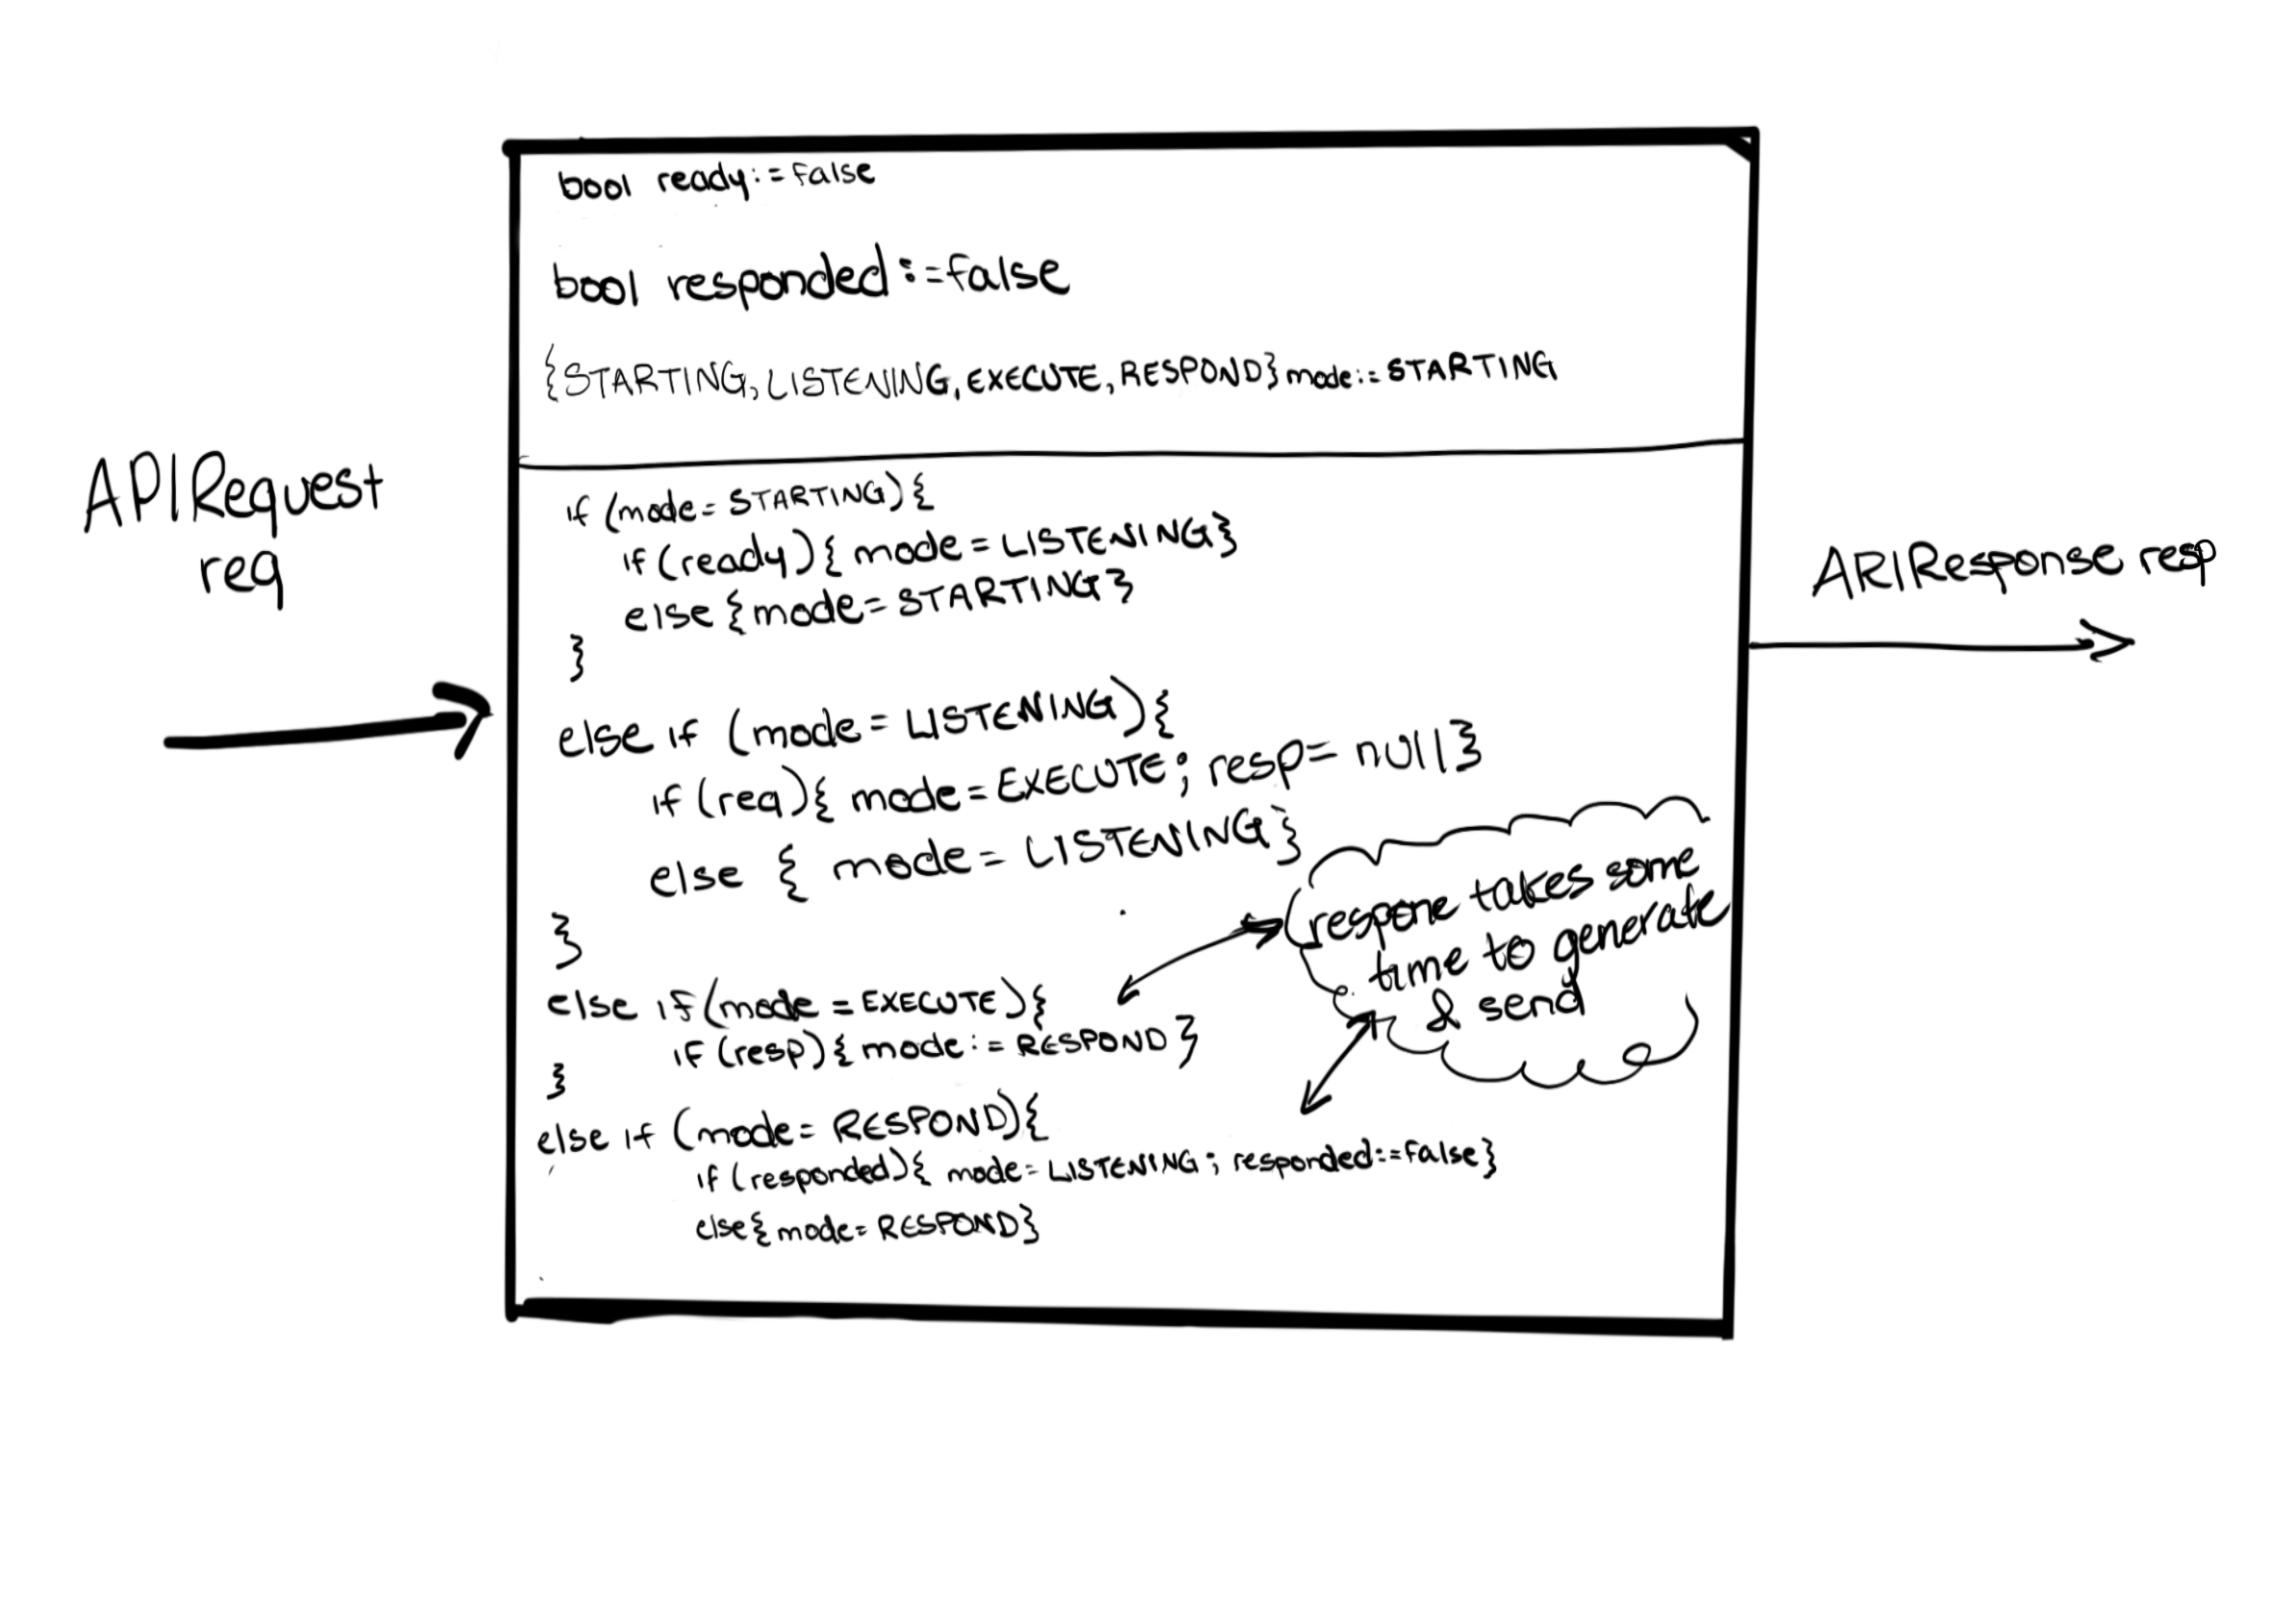 bool ready:=false
bool responded:=false
{STARTING, LISTENING, EXECUTE, RESPOND} mode:= STARTING
APIRequest
req
if (mode= STARTING) {
if (ready) { mode = LISTENING}
else { mode= STARTING }
}
else if (mode = LISTENING) {
if (req) { mode = EXECUTE; resp= null }
else { mode = LISTENING }
}
else if (mode = EXECUTE) {
if (resp) { mode := RESPOND }
}
else if (mode= RESPOND) {
if (responded) { mode= LISTENING; responded:=false }
else { mode= RESPOND}
respone takes some
time to generate
& send
ARIResponse resp